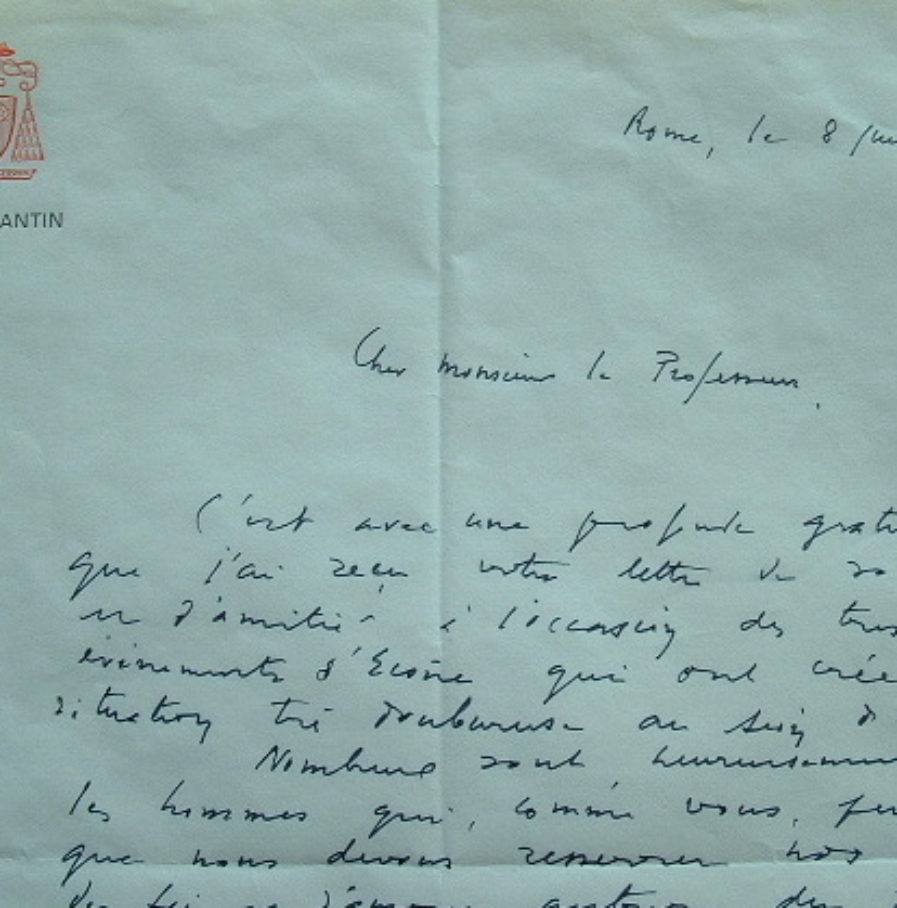 ANTIN
Rome, le 8
Cher Monsieur le Professeur,
C'est avec une profonde grat
que j'ai reçu votre lettre de so
et d'amitié à l'occasion des
événements d'Ecône qui ont créé
situation très douloureuse au sein d
Nombreux sont heureusement
les hommes qui, comme vous,
que nous devons resserrer nos